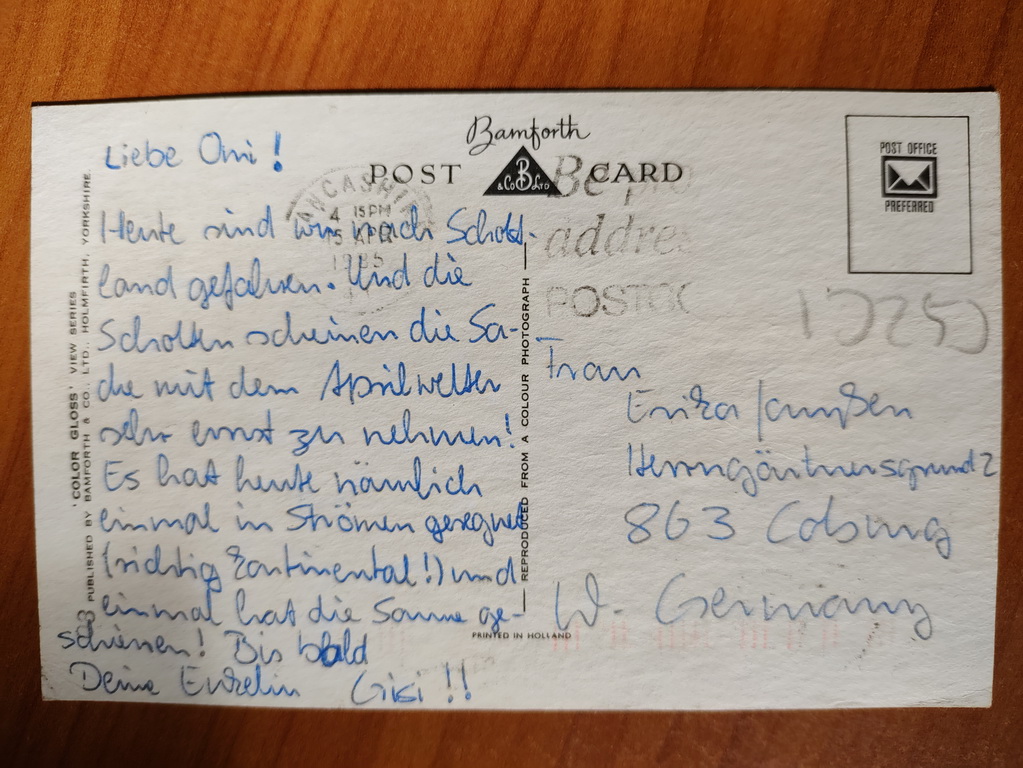 Liebe Omi!
Heute sind wir nach Schott-
land gefahren. Und die
Schotten scheinen die Sa-
che mit dem Aprilwetter
sehr ernst zu nehmen!
Es hat heute nämlich
einmal in Strömen geregnet
(richtig kontinental!) und
einmal hat die Sonne ge-
schienen! Bis bald
Deine Enkelin Gisi!!
Bamforth
POST CARD
& Co B LTD
LANCASHIRE
4 15 PM
15 APR
1985
Be
addre
POSTCO
POST OFFICE
PREFERRED
Frau
Erika Janßen
Herrngärtnersgrund 2
863 Coburg
W. Germany
'COLOR GLOSS' VIEW SERIES
PUBLISHED BY BAMFORTH & CO. LTD., HOLMFIRTH, YORKSHIRE.
REPRODUCED FROM A COLOUR PHOTOGRAPH
PRINTED IN HOLLAND